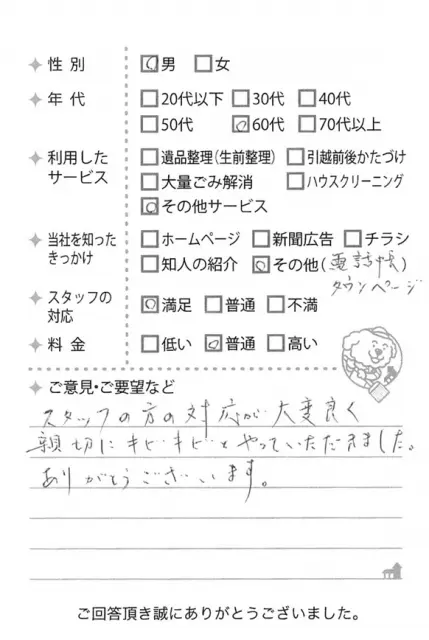 性別 男 女
年代 20代以下 30代 40代
50代 60代 70代以上
利用した
サービス
遺品整理(生前整理) 引越前後かたづけ
大量ごみ解消 ハウスクリーニング
その他サービス
当社を知った
きっかけ
ホームページ 新聞広告 チラシ
知人の紹介 その他(電話帳)
タウンページ
スタッフの
対応
満足 普通 不満
料金 低い 普通 高い
ご意見・ご要望など
スタッフの方の対応が大変良く
親切にキビキビとやっていただきました。
ありがとうございます。
ご回答頂き誠にありがとうございました。